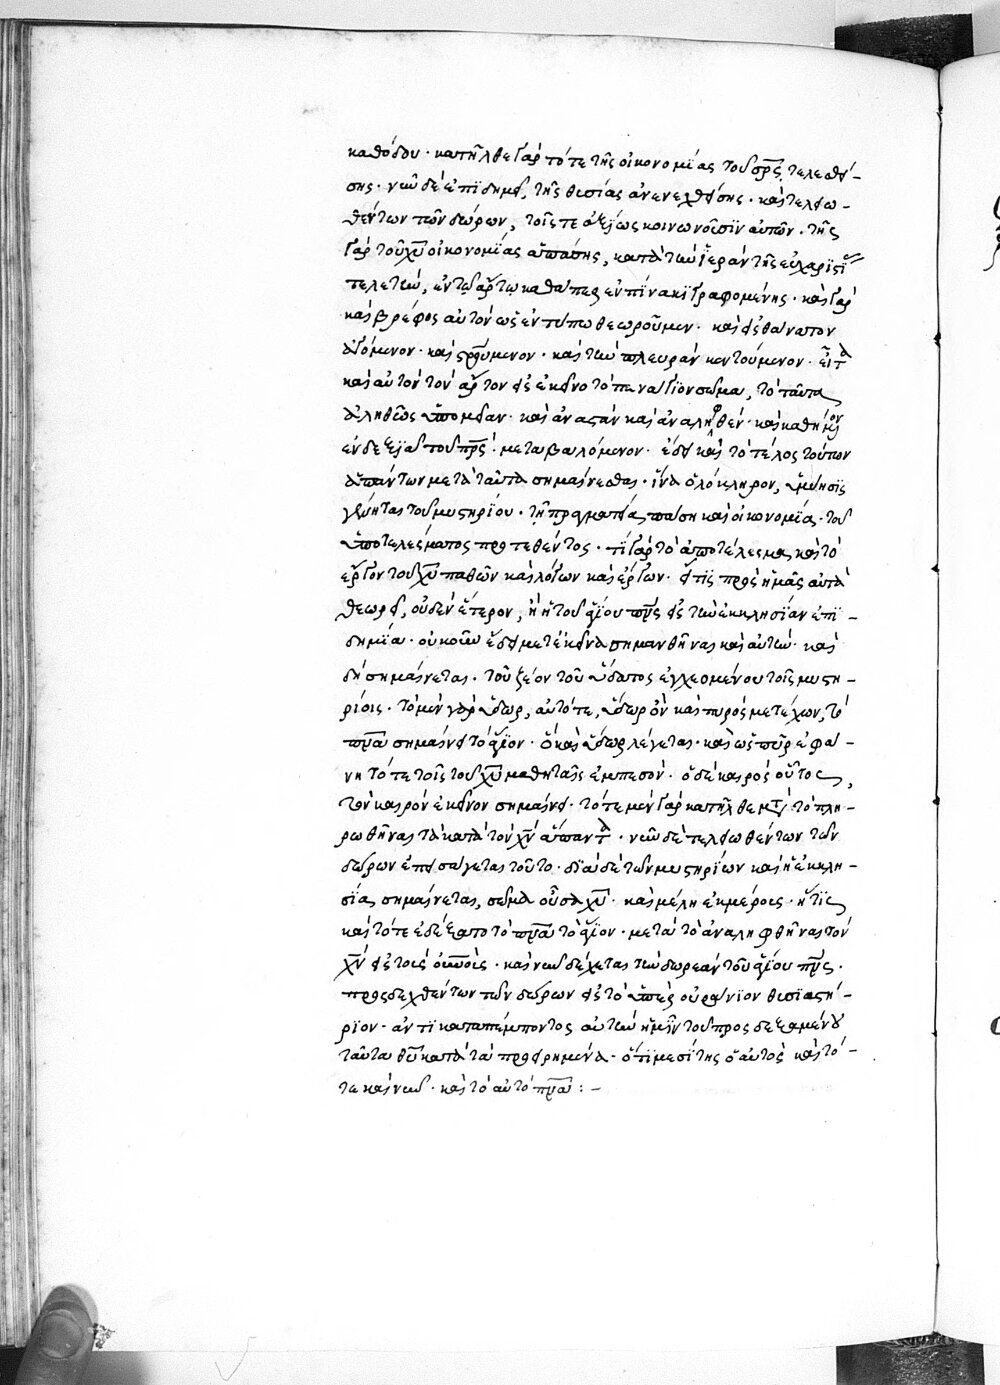 καθόδου · κατῆλθε γὰρ τότε τῆς οἰκονομίας τοῦ σρ̅ς τελεσθεί-
σης · νῦν δὲ ἐπιδημεῖ, τῆς θυσίας ἀνενεχθείσης · καὶ τελειω-
θέντων τῶν δώρων, τοῖς τε ἀξίως κοινωνοῦσιν αὐτῶν · τῆς
γὰρ τοῦ χυ̅ οἰκονομίας ἁπάσης, κατὰ τὴν ἱερὰν τῆς εὐχαριστί
τελετὴν, ἐν τῷ ἄρτῳ καθάπερ ἐν πίνακι γραφομένης · καὶ γὰρ
καὶ βρέφος αὐτὸν ὡς ἐν τύπῳ θεωροῦμεν · καὶ εἰς θάνατον
ἀγόμενον · καὶ σρούμενον · καὶ τὴν πλευρὰν κεντούμενον · εἶτα
καὶ αὐτὸν τὸν ἄρτον εἰς ἐκεῖνο τὸ πανάγιον σῶμα, τὸ ταῦτα
ἀληθῶς ὑπομεῖναν · καὶ ἀναστὰν καὶ ἀναληφθέν · καὶ καθήμενον
ἐν δεξιᾷ τοῦ πρ̅ς · μεταβαλόμενον · ἔδει καὶ τὸ τέλος τούτων
ἁπάντων μετὰ ταῦτα σημαίνεσθαι · ἵνα ὁλόκληρον, ὕμνησις
γένηται τοῦ μυστηρίου · τῇ πραγματείᾳ πάσῃ καὶ οἰκονομίᾳ · τοῦ
ἀποτελέσματος προστεθέντος · τί γὰρ τὸ ἀποτέλεσμα καὶ τὸ
ἔργον τοῦ χυ̅ παθῶν καὶ λόγων καὶ ἔργων · εἴ τις πρὸς ἡμᾶς αὐτὰ
θεωρεῖ, οὐδὲν ἕτερον, ἢ ἡ τοῦ ἁγίου πν̅ς εἰς τὴν ἐκκλησίαν ἐπι-
δημία · οὐκοῦν ἔδει μετ' ἐκεῖνα σημανθῆναι καὶ αὐτήν · καὶ
δὴ σημαίνεται · τοῦ ξέον τοῦ ὕδατος ἐγχεομένου τοῖς μυστη-
ρίοις · τὸ μὲν γὰρ ὕδωρ, αὐτό τε, ὕδωρ ὂν καὶ πυρὸς μετέχων, τὸ
πνα̅ σημαίνει τὸ ἅγιον · ὃ καὶ ὕδωρ λέγεται · καὶ ὡς πῦρ ἐφά-
νη τότε τοῖς τοῦ χυ̅ μαθηταῖς ἐμπεσόν · ὁ δὲ καιρὸς οὗτος,
τὸν καιρὸν ἐκεῖνον σημαίνει · τότε μὲν γὰρ κατῆλθε μετὰ τὸ πλη-
ρωθῆναι τὰ κατὰ τὸν χν̅ ἅπαντα · νῦν δὲ τελειωθέντων τῶν
δώρων ἐπεισάγεται τοῦτο · διὰ δὲ τῶν μυστηρίων καὶ ἡ ἐκκλη-
σία σημαίνεται, σῶμα οὖσα χυ̅ · καὶ μέλη ἐκ μέρους · ἥτις
καὶ τότε ἐδέξατο τὸ πνα̅ τὸ ἅγιον · μετὰ τὸ ἀναληφθῆναι τὸν
χν̅ εἰς τοὺς οὐνοὺς · καὶ νῦν δέχεται τὴν δωρεὰν τοῦ ἁγίου πν̅ς ·
προσδεχθέντων τῶν δώρων εἰς τὸ ὑπὲρ οὐράνιον θυσιαστή-
ριον · ἀντικαταπέμποντος αὐτὴν ἡμῖν τοῦ προσδεξαμένου
ταῦτα θυ̅ κατὰ τὰ προειρημένα · ὅτι μεσίτης ὁ αὐτὸς καὶ τό-
τε καὶ νῦν · καὶ τὸ αὐτὸ πνα̅ : –